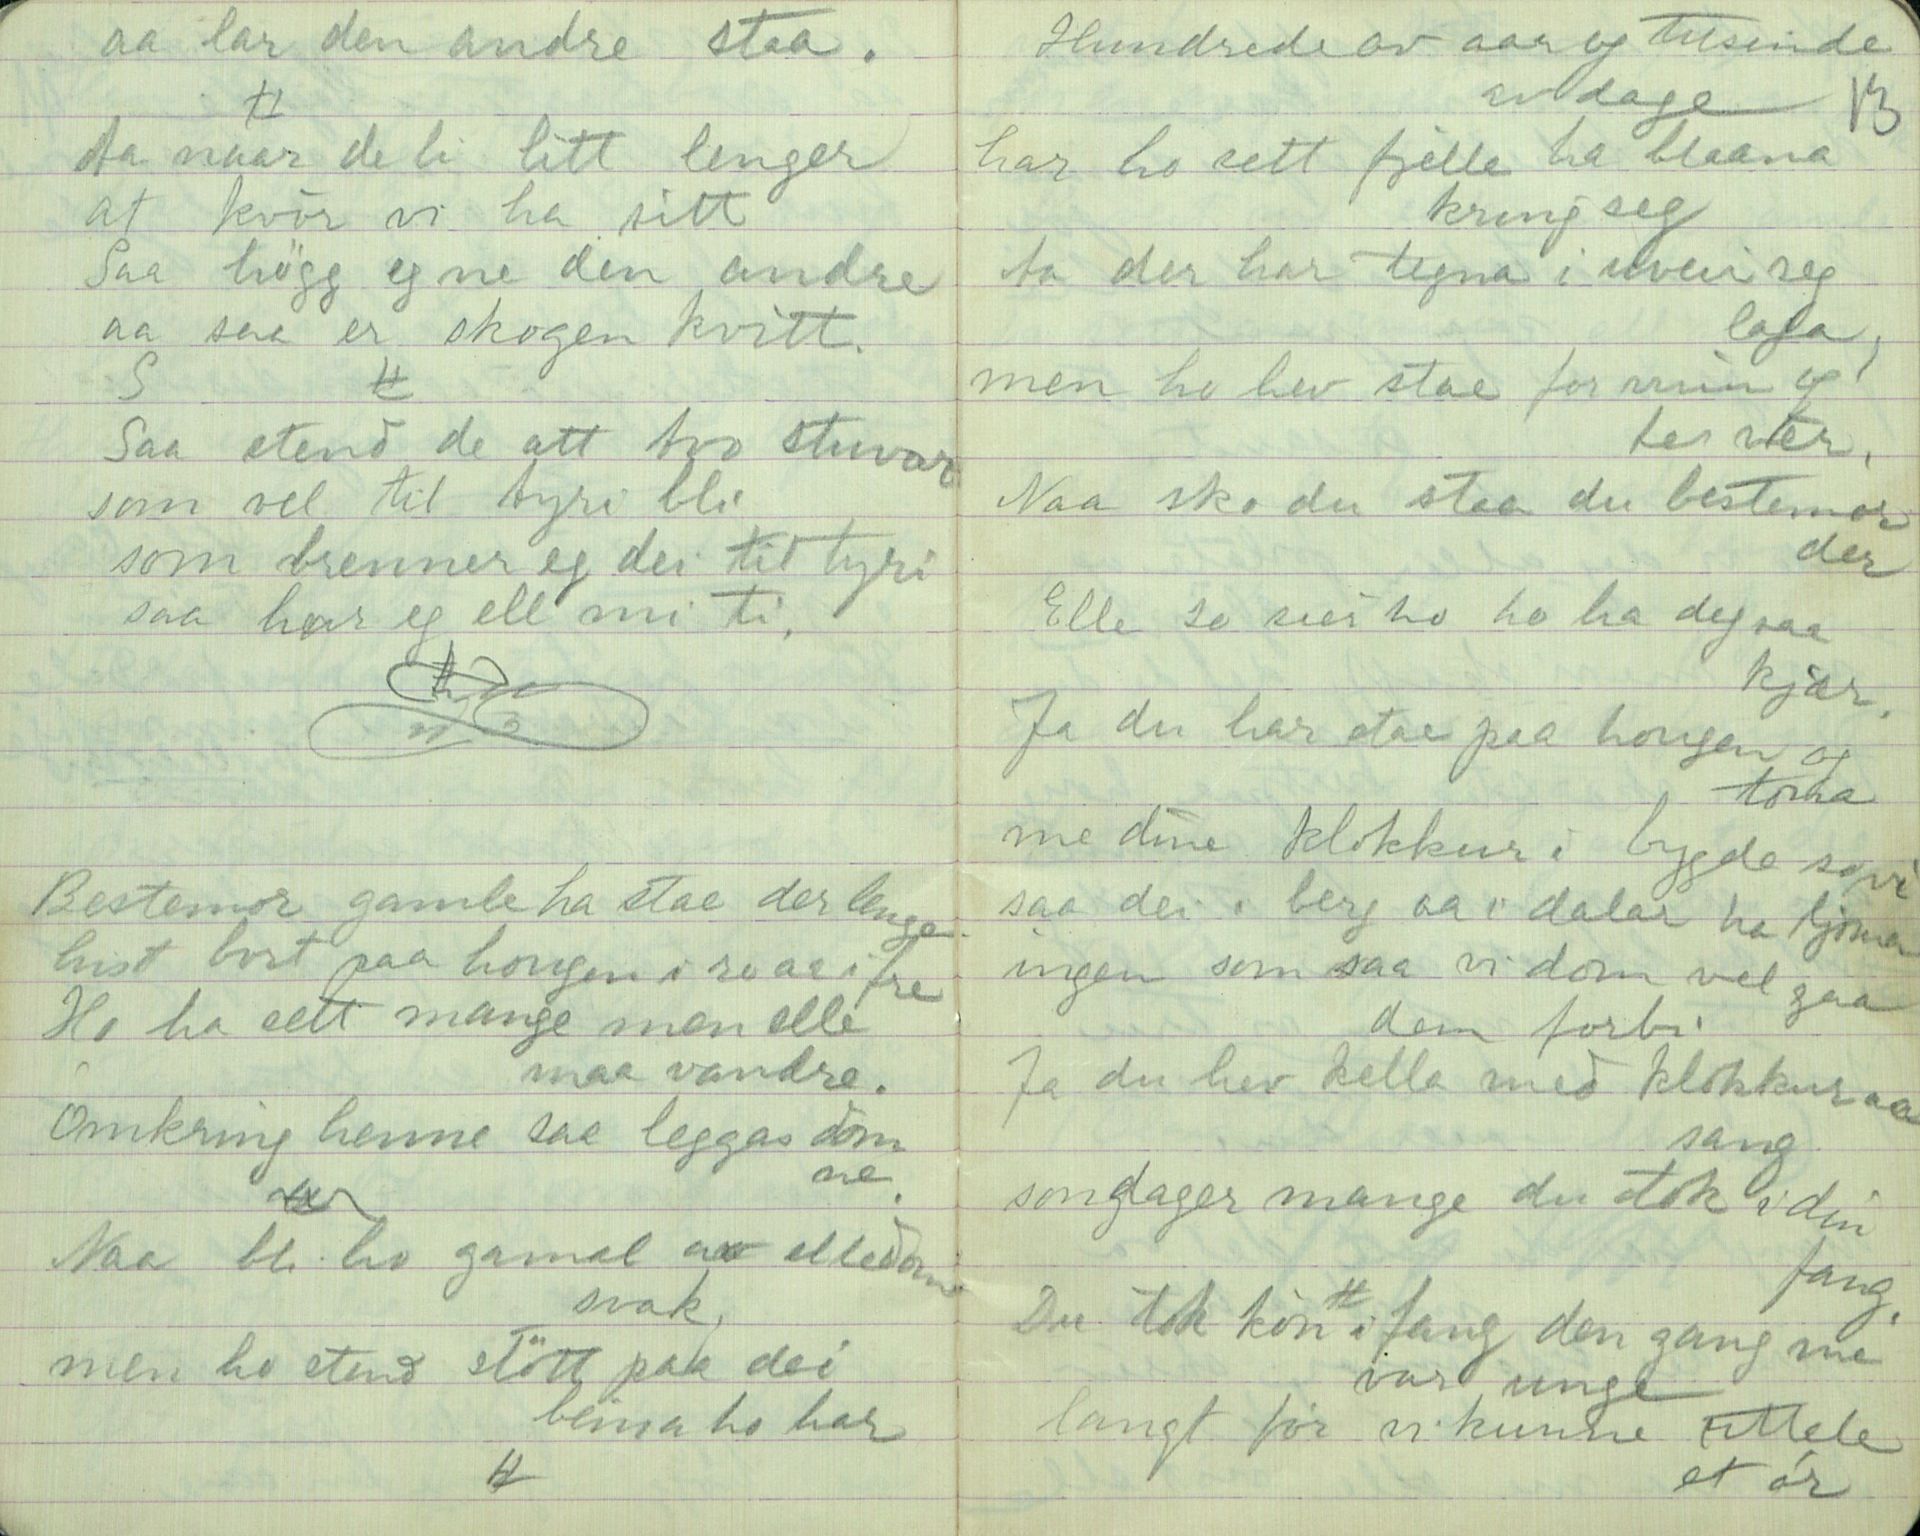 aa lar den andre staa.
Aa naar de li litt lenger
at kvör vi ha sitt
Saa högg eg ne den andre
aa saa er skogen kvitt.
S
Saa stend de att tvo stuvar
som vel til tyri bli
som brenner eg dei til tyri
saa har eg ell mi ti.
Bestemor gamle ha stae der lenge
hist bort paa hougen i ro aa i fre
Ho ha sett mange men elle
maa vandre.
Omkring henne saa leggas dom
ne.
Naa bli ho gamal av elledom
svak,
men ho stend stött paa dei
beina ho har
13
Hundrede av aar og tusinde
av dage
har ho sett fjelle ha blaana
kring seg
Aa der har tegna i uveir seg
laga,
men ho hev stae for vind og
for ver,
Naa sko du staa du bestemor
der
Elle so sier ho ho ha deg saa
kjær.
Ja du har stae paa hougen og
tona
me dine klokkur i bygde so vi
saa dei i berg aa i dalar ha ljoma
ingen som saa vi dom vel gaa
dem forbi
Ja du hev kella med klokkur aa
sang
sondager mange du tok i din
fang.
Du tok kón i fang den gang me
var unge
langt för vi kunne
et ór